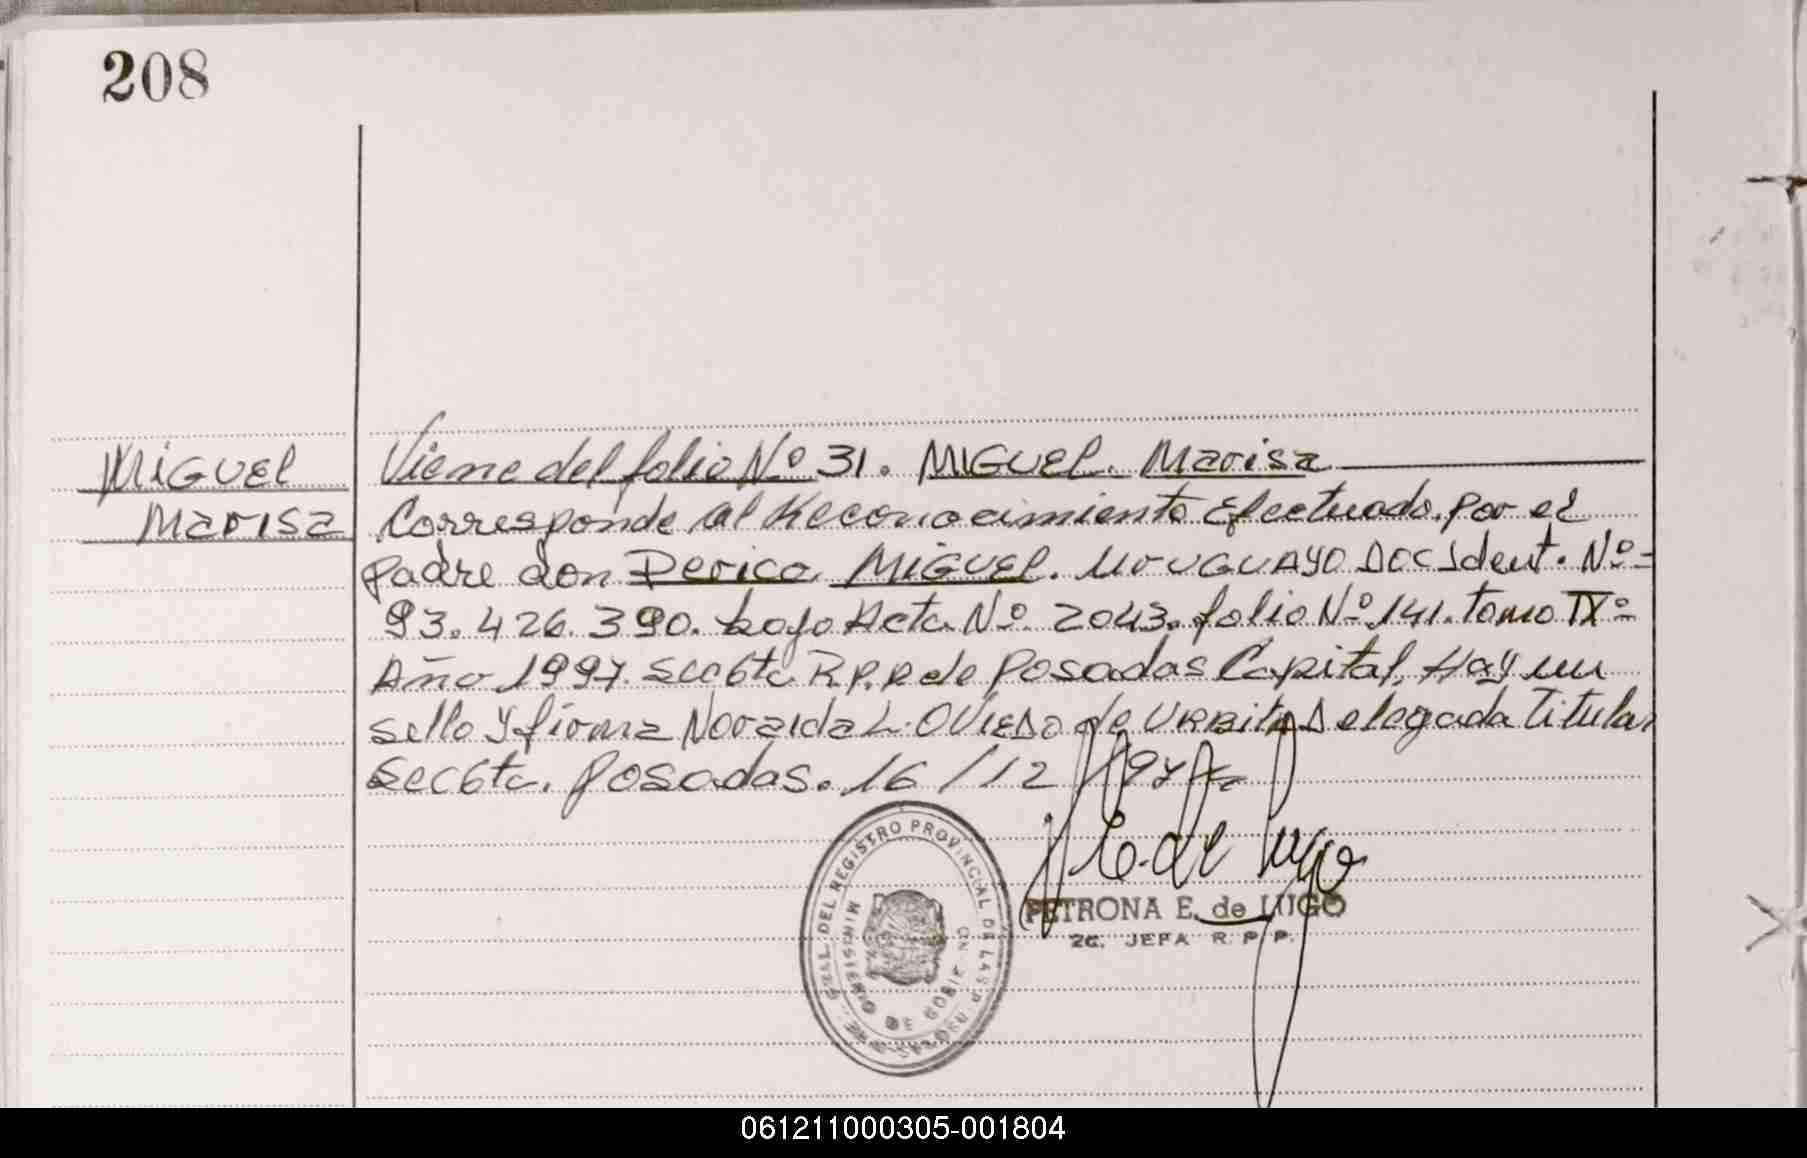 208
Miguel
Marisa
Viene del folio Nº 31. MIGUEL. Marisa
Corresponde al Reconocimiento Efectuado. Por el
padre don Derica MIGUEL. URUGUAYO Doc Ident. Nº=
93.426.390. bajo Acta Nº 2043. folio Nº 141. Tomo IXº
Año 1997. Sec 6ta R.P.P de Posadas Capital, Hay un
sello y firma Noraida L. OVIEDO de URBITA Delegada Titular
Sec 6ta. Posadas. 16/12/97
PETRONA E. de LUGO
2a. JEFA R. P. P.
DEL REGISTRO PROVINCIAL DE LAS
061211000305-001804